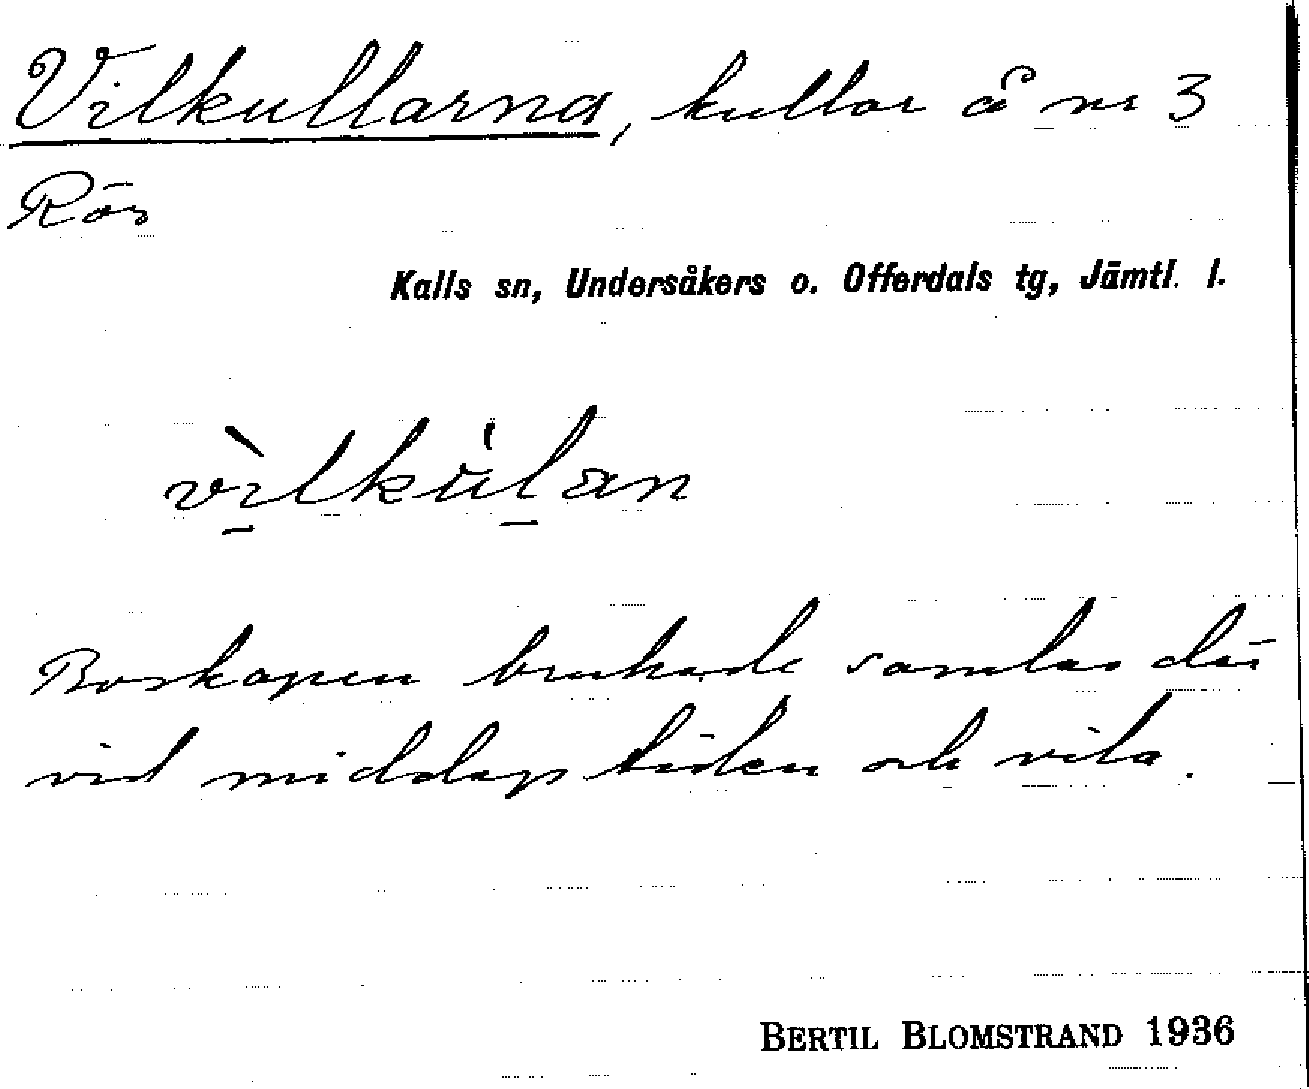 Vilkullarna, kullar å nr 3
Rös
Kalls sn, Undersåkers o. Offerdals tg, Jämtl. l.
vìlkùlan
Boskapen brukade samlas där
vid middagstiden och vila.
BERTIL BLOMSTRAND 1936